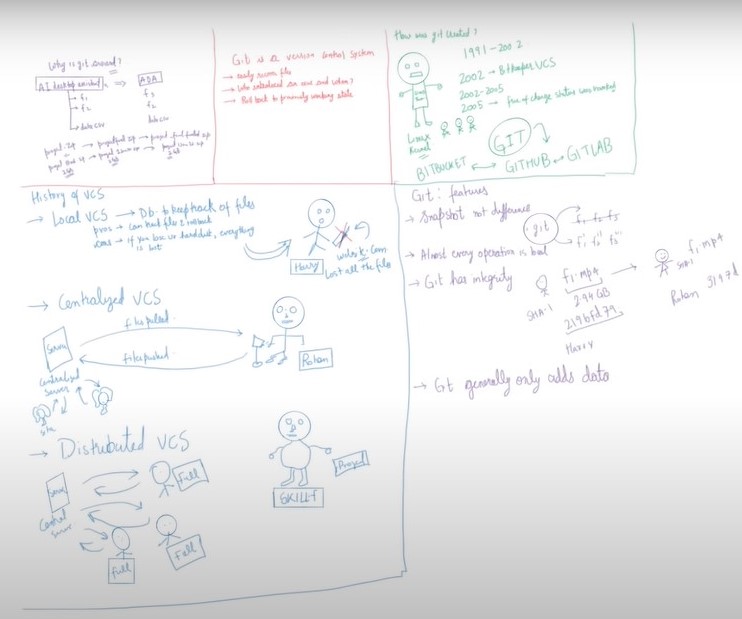 Why is git used?
AI desktop assistant → ADA
f1
f2
data.csv
f3
f2
data.csv
Git is a version control system
→ easily recover files
→ Who introduced an issue and when?
→ Roll back to previously working state
How was git created?
1991-2002
2002 → Bitkeeper VCS
2002-2005
2005 → free of charge status was revoked
Linux
Kernel
GIT
BITBUCKET ↔ GITHUB ↔ GITLAB
History of VCS
→ Local VCS → Db. to keep track of files
pros → can track files & rollback
cons → if you lose ur hard disk, everything
is lost
Harry
Lost all the files
→ Centralized VCS
files pulled
Server
files pushed
Rohan
Centralized
Server
→ Distributed VCS
Server
Full
Central
Server
Full
Full
SKILLF
Project
Git: features
→ Snapshot not difference
git
f1 f2 f3
→ Almost every operation is local
→ Git has integrity
f1.mp4
SHA-1
294GB
219bfd79
Harry
f1.mp4
SHA-1
Rohan 3147d
→ Git generally only adds data